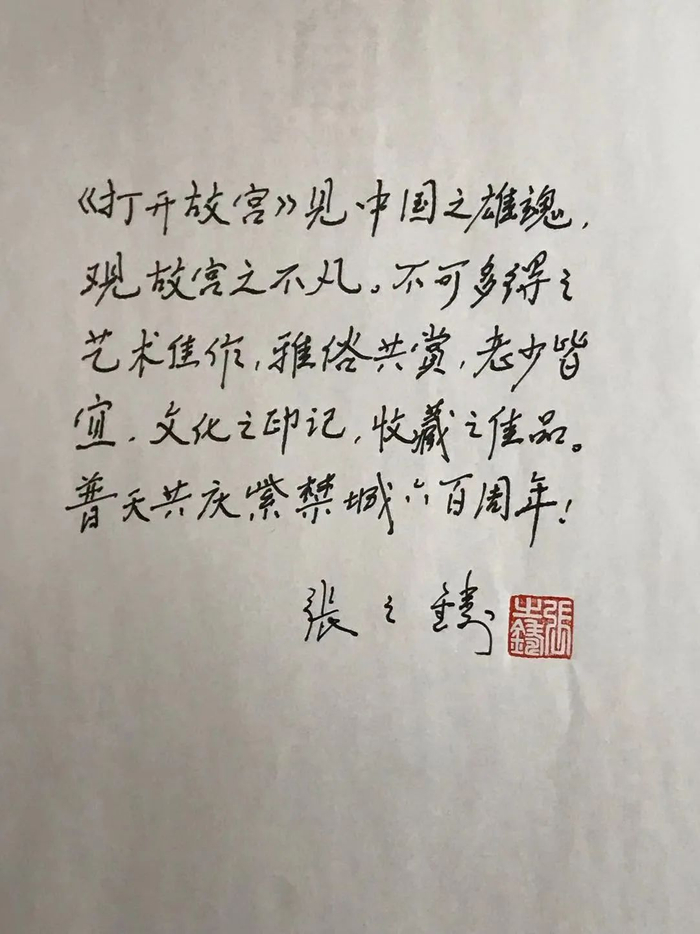 《打开故宫》见中国之雄魂，
观故宫之不凡。不可多得之
艺术佳作，雅俗共赏，老少皆
宜，文化之印记，收藏之佳品。
普天共庆紫禁城六百周年！
張之鑄
張之鑄